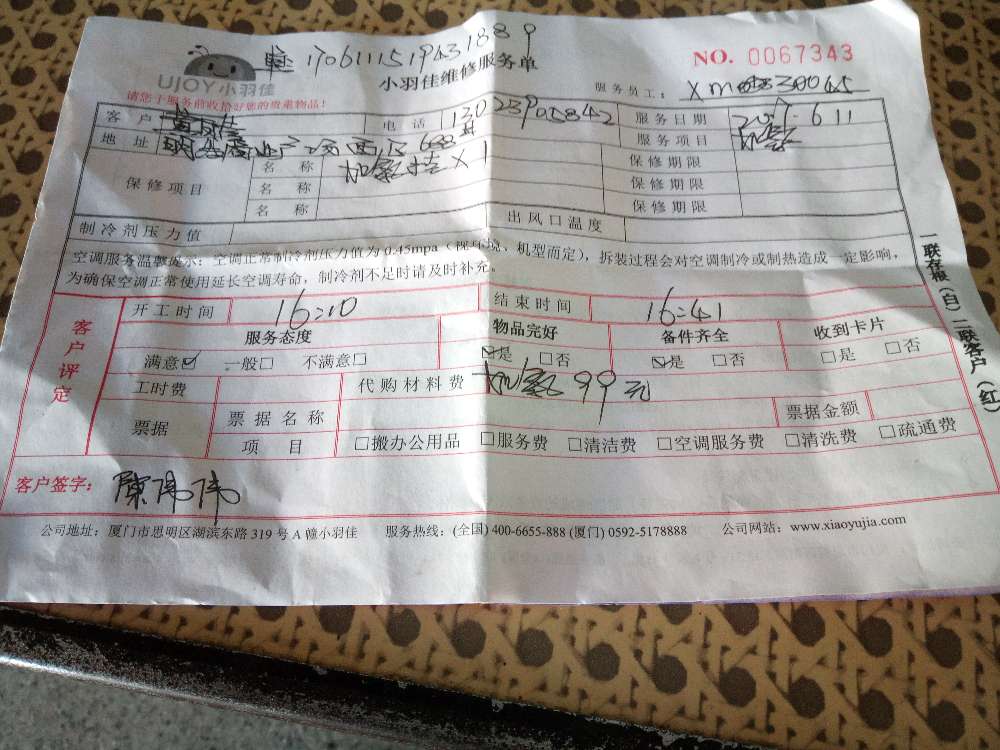 1706111519431889
NO. 0067343
UJOY小羽佳
小羽佳维修服务单
服务员工：
请您于服务前收拾好您的贵重物品！
客户 电话 服务日期 2017.6.11
地址 服务项目 加氨
名称 保修期限
保修项目 名称 保修期限
名称 保修期限
制冷剂压力值 出风口温度
空调服务温馨提示：空调正常制冷剂压力值为0.45mpa（视环境，机型而定），拆装过程会对空调制冷或制热造成一定影响，
为确保空调正常使用延长空调寿命，制冷剂不足时请及时补充。
开工时间 16:10 结束时间 16:41
客户评定
服务态度 物品完好 备件齐全 收到卡片
满意☑ 一般□ 不满意□ ☑是 □否 ☑是 □否 □是 □否
工时费 代购材料费 加氨99元
票据 票据名称 票据金额
项目 □搬办公用品 □服务费 □清洁费 □空调服务费 □清洗费 □疏通费
客户签字：
公司地址：厦门市思明区湖滨东路 319 号 A 幢小羽佳 服务热线：(全国) 400-6655-888 (厦门) 0592-5178888 公司网站：www.xiaoyujia.com
一联存根（白）二联客户（红）